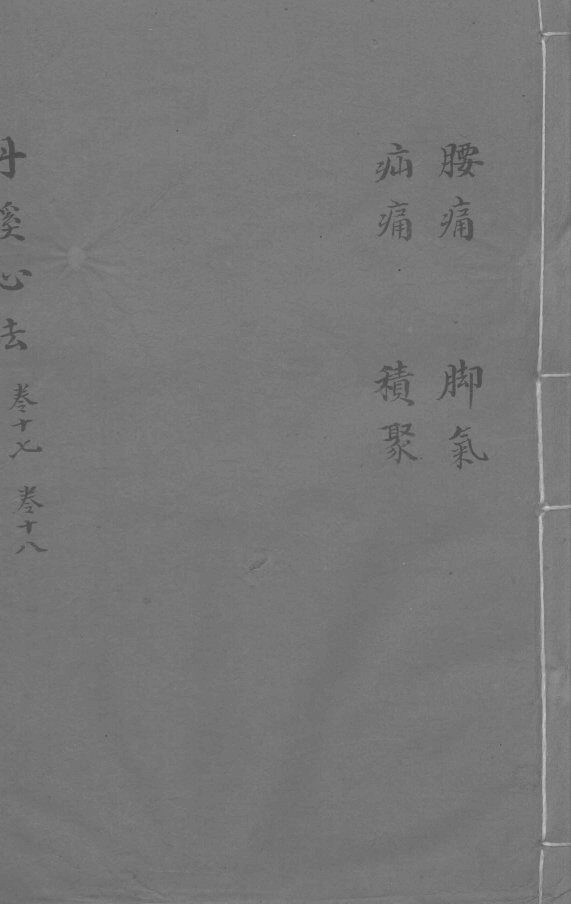 腰痛 脚氣
疝痛 積聚
丹溪心法 卷十七 卷十八